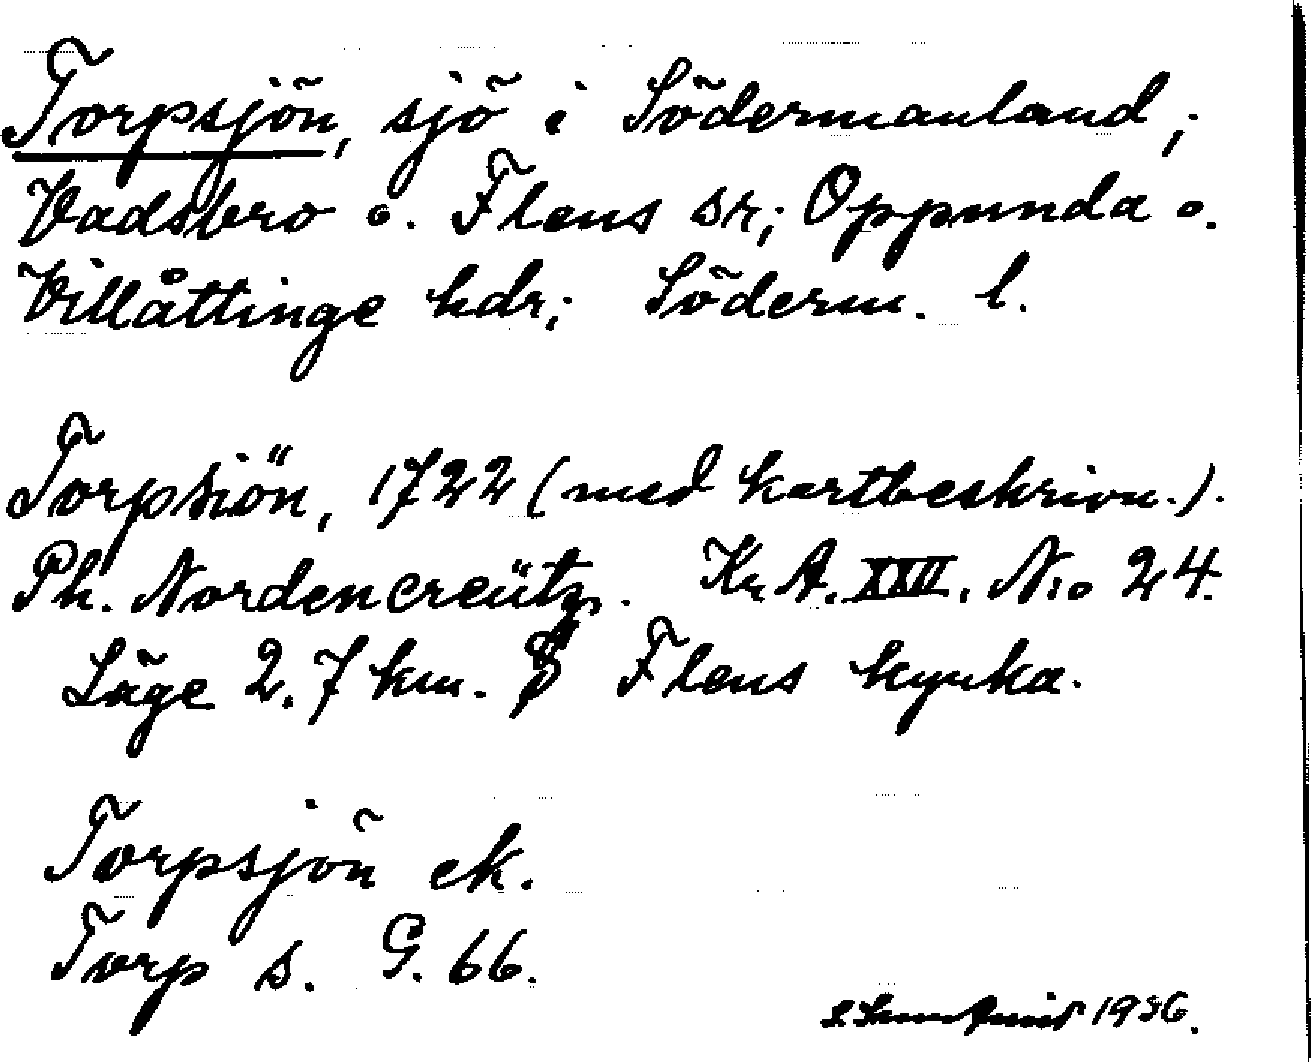 Torpsjön, sjö i Södermanland;
Vadsbro o. Flens sr; Oppunda o.
Villåttinge hdr; Söderm. l.
Torpsiön, 1722 (med kartbeskrivn.).
Ph. Nordencreütz. Kr. A. XXII. No 24.
Läge 2.7 km. Flens kyrka.
Torpsjön ek.
Torp s. G. 66.
1936.